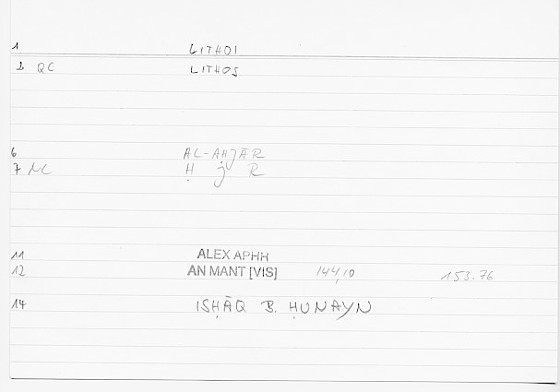 1 LITHOI
3 QC LITHOS
6 AL-AḤJĀR
7 NC Ḥ J R
11 ALEX APHH
12 AN MANT [VIS] 144,10 153.76
14 ISḤĀQ B. ḤUNAYN